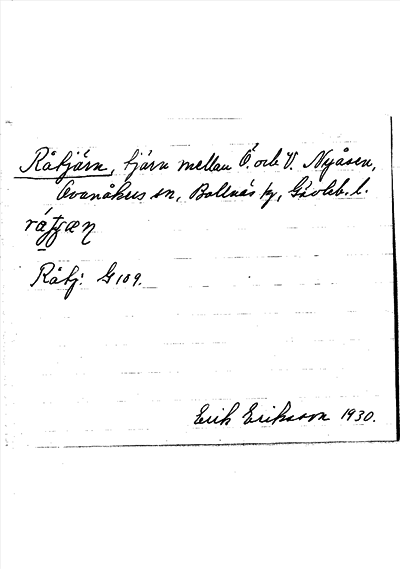 Råtjärn, tjärn mellan Ö. och V. Nyåsen,
Ovanåkers sn, Bollnäs tg, Gävleb. l.
Råtj: G 109.
Erik Eriksson 1930.